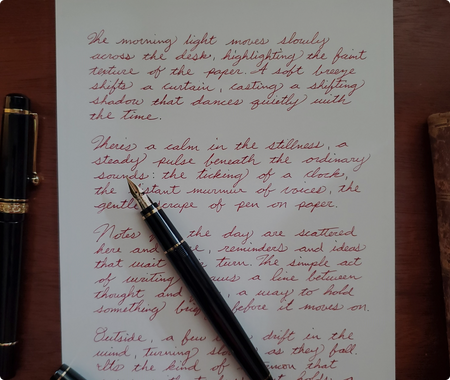 The morning light moves slowly
across the desk, highlighting the faint
texture of the paper. A soft breeze
shifts a curtain, casting a shifting
shadow that dances quietly with
the time.
There's a calm in the stillness, a
steady pulse beneath the ordinary
sounds: the ticking of a clock,
the murmur of voices, the
gentle scrape of pen on paper.
Notes the day are scattered
here and reminders and ideas
that wait turn. The simple act
of writing a line between
thought and a way to hold
something before it moves on.
Outside, a few drift in the
wind, turning as they fall.
It's the kind of that